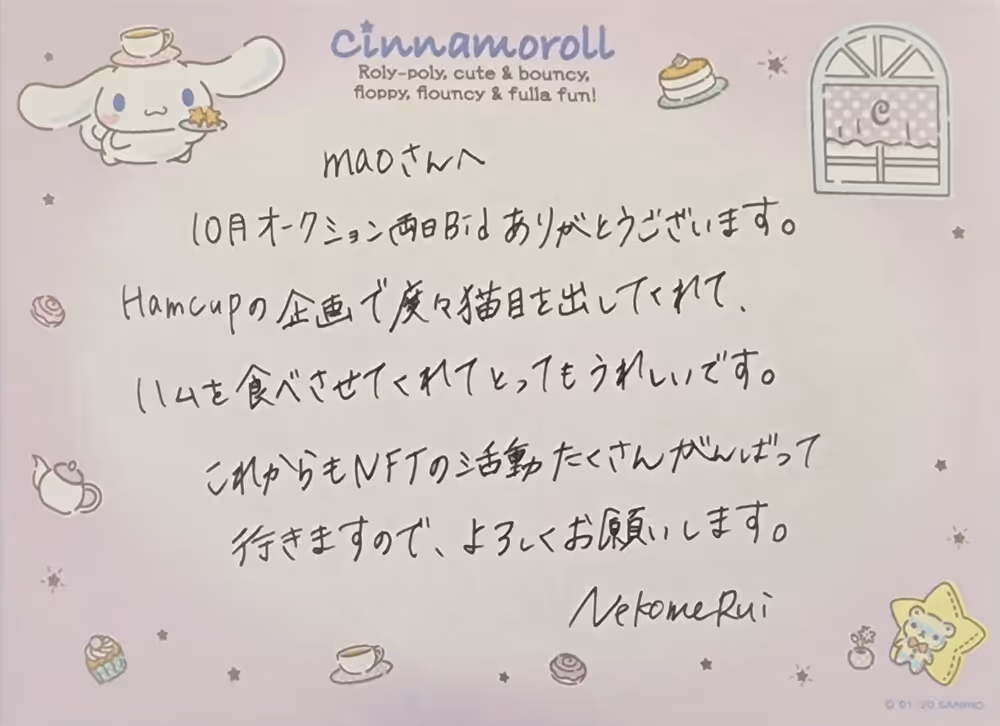 cinnamoroll
Roly-poly, cute & bouncy,
floppy, flouncy & fulla fun!
C
maoさんへ
10月オークション両日Bidありがとうございます。
Hamcupの企画で度々猫目を出してくれて、
ハムを食べさせてくれてとってもうれしいです。
これからもNFTの活動たくさんがんばって
行きますので、よろしくお願いします。
NekomeRui
© '01 '20 SANRIO